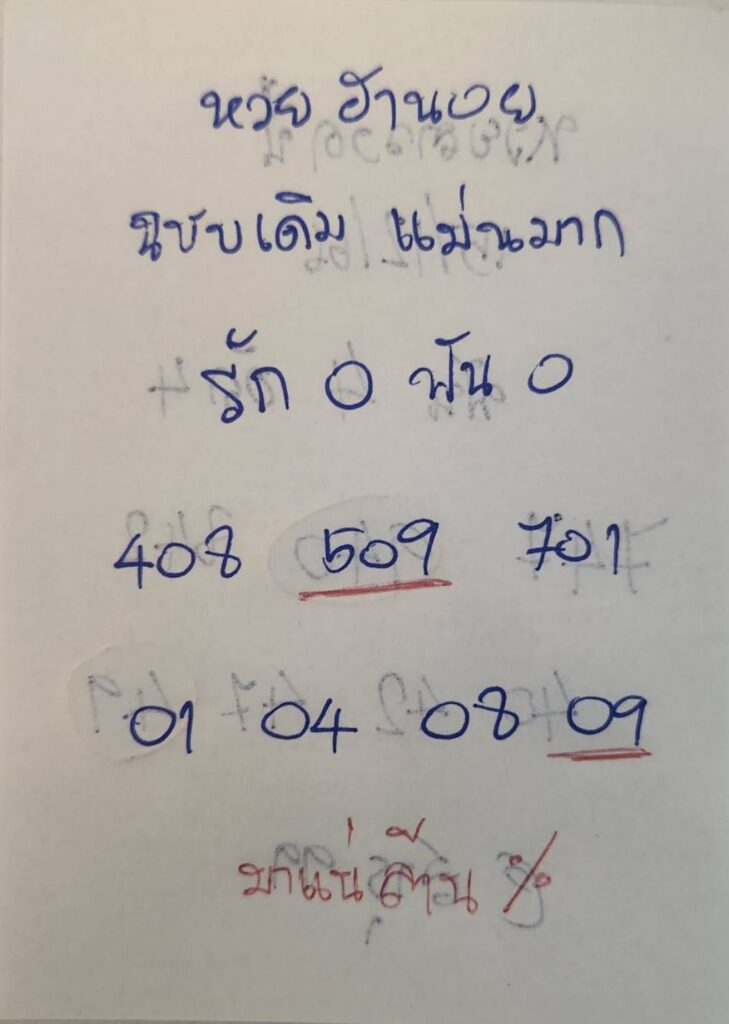 หวย ฮานอย
ฉบับเดิม แม่นมาก
รัก 0 ฟัน 0
408 509 701
01 04 08 09
มาแน่ ล้าน %